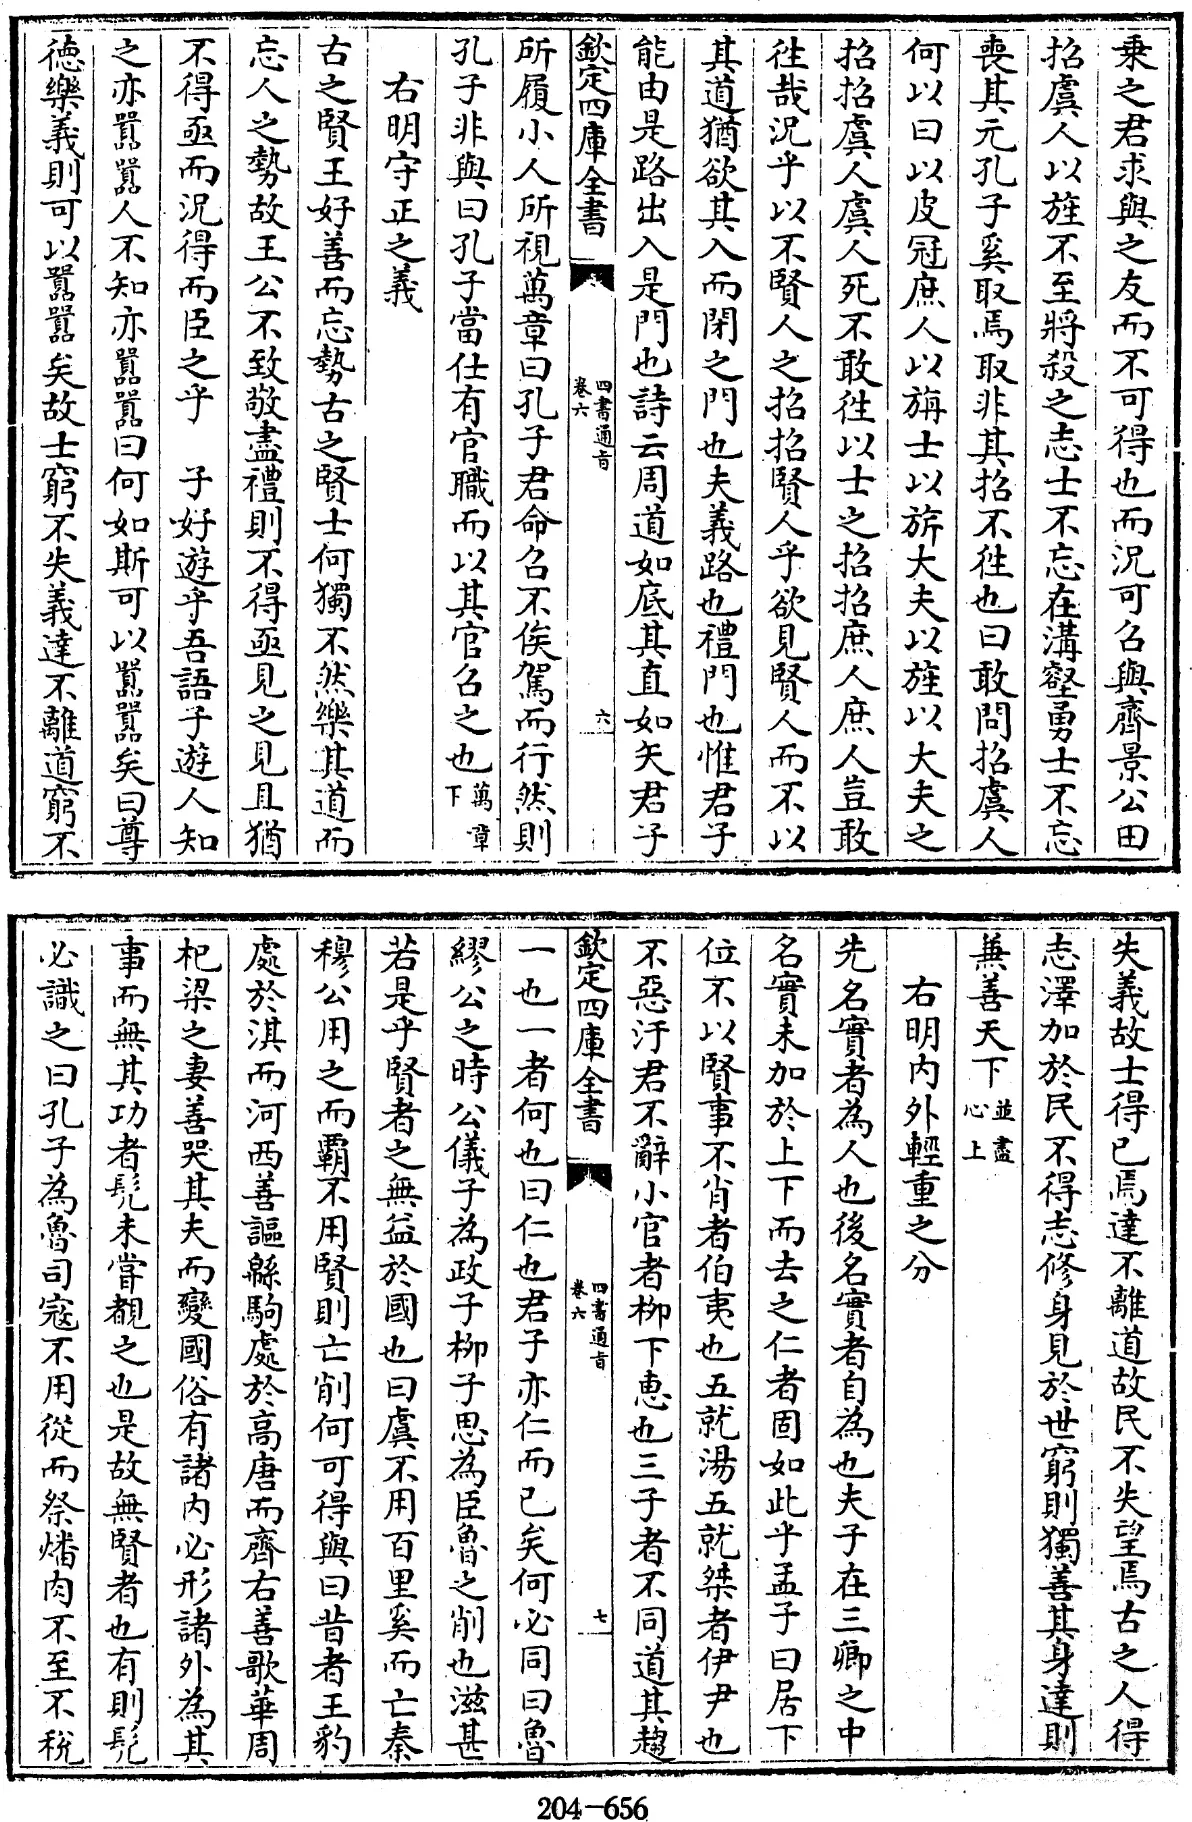 乗之君求與之友而不可得也而況可召與齊景公田
招虞人以旌不至將殺之志士不忘在溝壑勇士不忘
喪其元孔子奚取焉取非其招不徃也曰敢問招虞人
何以曰以皮冠庶人以旃士以旂大夫以旌以大夫之
招招虞人虞人死不敢徃以士之招招庶人庶人豈敢
徃哉況乎以不賢人之招招賢人乎欲見賢人而不以
其道猶欲其入而閉之門也夫義路也禮門也惟君子
能由是路出入是門也詩云周道如底其直如矢君子
欽定四庫全書
四書通旨
卷六
六
所履小人所視萬章曰孔子君命召不俟駕而行然則
孔子非與曰孔子當仕有官職而以其官召之也萬章
下
右明守正之義
古之賢王好善而忘勢古之賢士何獨不然樂其道而
忘人之勢故王公不致敬盡禮則不得亟見之見且猶
不得亟而況得而臣之乎 子好遊乎吾語子遊人知
之亦囂囂人不知亦囂囂曰何如斯可以囂囂矣曰尊
徳樂義則可以囂囂矣故士窮不失義達不離道窮不
失義故士得已焉達不離道故民不失望焉古之人得
志澤加於民不得志修身見於世窮則獨善其身達則
兼善天下並盡
心上
右明内外輕重之分
先名實者為人也後名實者自為也夫子在三卿之中
名實未加於上下而去之仁者固如此乎孟子曰居下
位不以賢事不肖者伯夷也五就湯五就桀者伊尹也
不惡汙君不辭小官者栁下惠也三子者不同道其趨
欽定四庫全書
四書通旨
卷六
七
一也一者何也曰仁也君子亦仁而已矣何必同曰魯
繆公之時公儀子為政子栁子思為臣魯之削也滋甚
若是乎賢者之無益於國也曰虞不用百里奚而亡秦
穆公用之而覇不用賢則亡削何可得與曰昔者王豹
處於淇而河西善謳緜駒處於高唐而齊右善歌華周
杞梁之妻善哭其夫而變國俗有諸内必形諸外為其
事而無其功者髠未嘗覩之也是故無賢者也有則髠
必識之曰孔子為魯司寇不用從而祭燔肉不至不稅
204-656